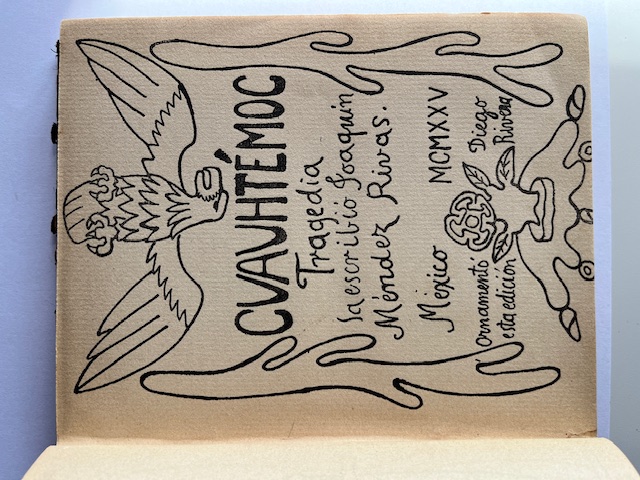 CVAVHTÉMOC
Tragedia
la escribió Joaquín
Méndez Rivas.
México MCMXXV
Ornamentó Diego
esta edición Rivera